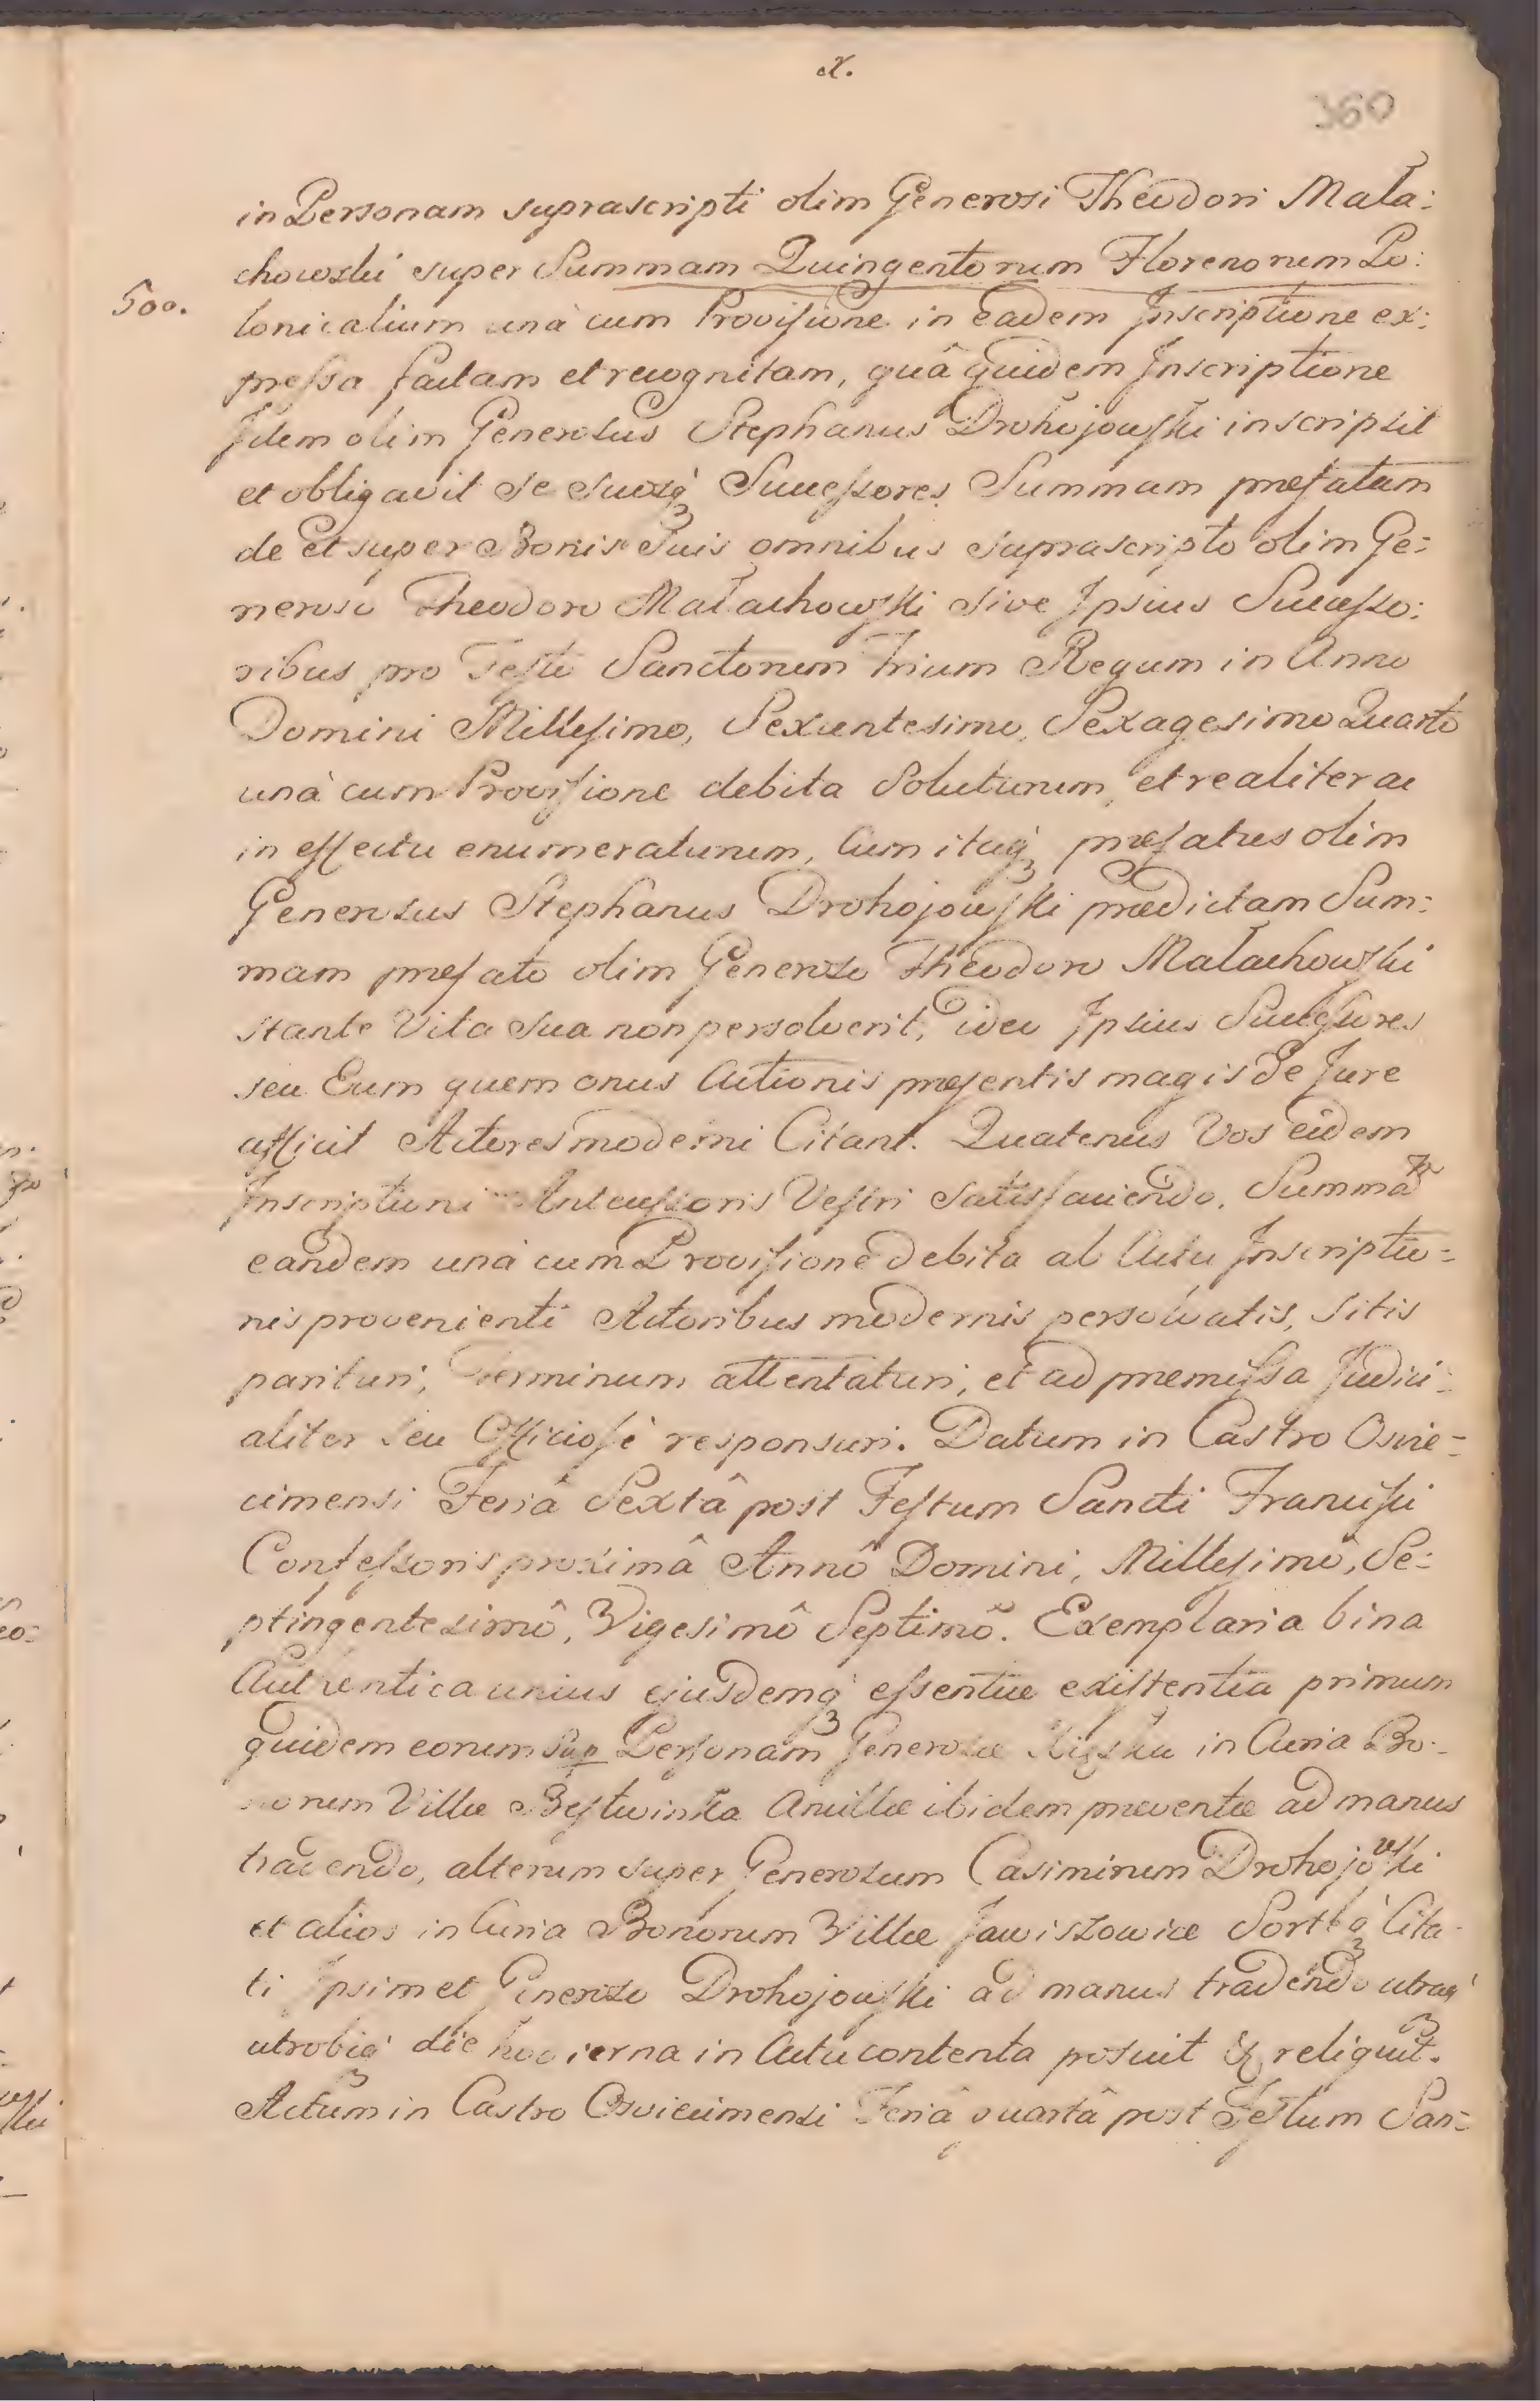 x.
360
in Personam suprascripti olim Generosi Theodori Mała:
chowski super Summam Quingentorum Florenorum Po:
500.
lonicalium unà cum Provisione in eadem Inscriptione ex:
pressa factam et recognitam, quâ quidem Inscriptione
Idem olim Generosus Stephanus Drohojowski inscripsit
et obligavit se suosq́₃ Successores Summam præfatam
de et super Bonis Suis omnibus suprascripto olim Ge:
neroso Theodoro Małachowski sive Ipsius Successo:
ribus pro Festo Sanctorum Trium Regum in Anno
Domini Millesimo, Sexcentesimo, Sexagesimo Quarto
unà cum Provisione debita Soluturum, et realiter ac
in effectu enumeraturum, Cum itaq́₃ præfatus olim
Generosus Stephanus Drohojowski prædictam Sum:
mam præfato olim Generoso Theodoro Małachowski
stante Vita sua non persolverit, ideo Ipsius Successores
seu Eum quem onus Actionis præsentis magis de Jure
afficit Actores moderni Citant. Quatenus Vos eidem
Inscriptioni Antecessoris Vestri satisfaciendo, Summã
eandem unà cum Provisione debita ab Actu Inscriptio=
nis provenienti Actoribus modernis persolvatis, sitis
parituri, Terminum attentaturi, et ad præmissa Judici:
aliter seu Officiosè responsuri. Datum in Castro Oswie=
cimensi Feriâ Sextâ post Festum Sancti Francisci
Confessoris proximâ Annô Domini, Millesimô, Se:
ptingentesimô, Vigesimô Septimô. Exemplaria bina
Authentica unius ejusdemq́₃ essentiæ existentia primum
quidem eorum Sup Personam Generosæ in Curia Bo:
norum Villæ Bestwinka Ancillæ ibidem præventæ ad manus
tradendo, alterum super Generosum Casimirum Drohojowski
et alios in Curia Bonorum Villæ Jawiszowice Cita-
ti Ipsimet Generoso Drohojowski ad manus tradendo utraq́₃
utrobiq́₃ die hodierna in Actu contenta posuit & reliquit.
Actum in Castro Osviecimensi Feriâ quartâ post Festum San=